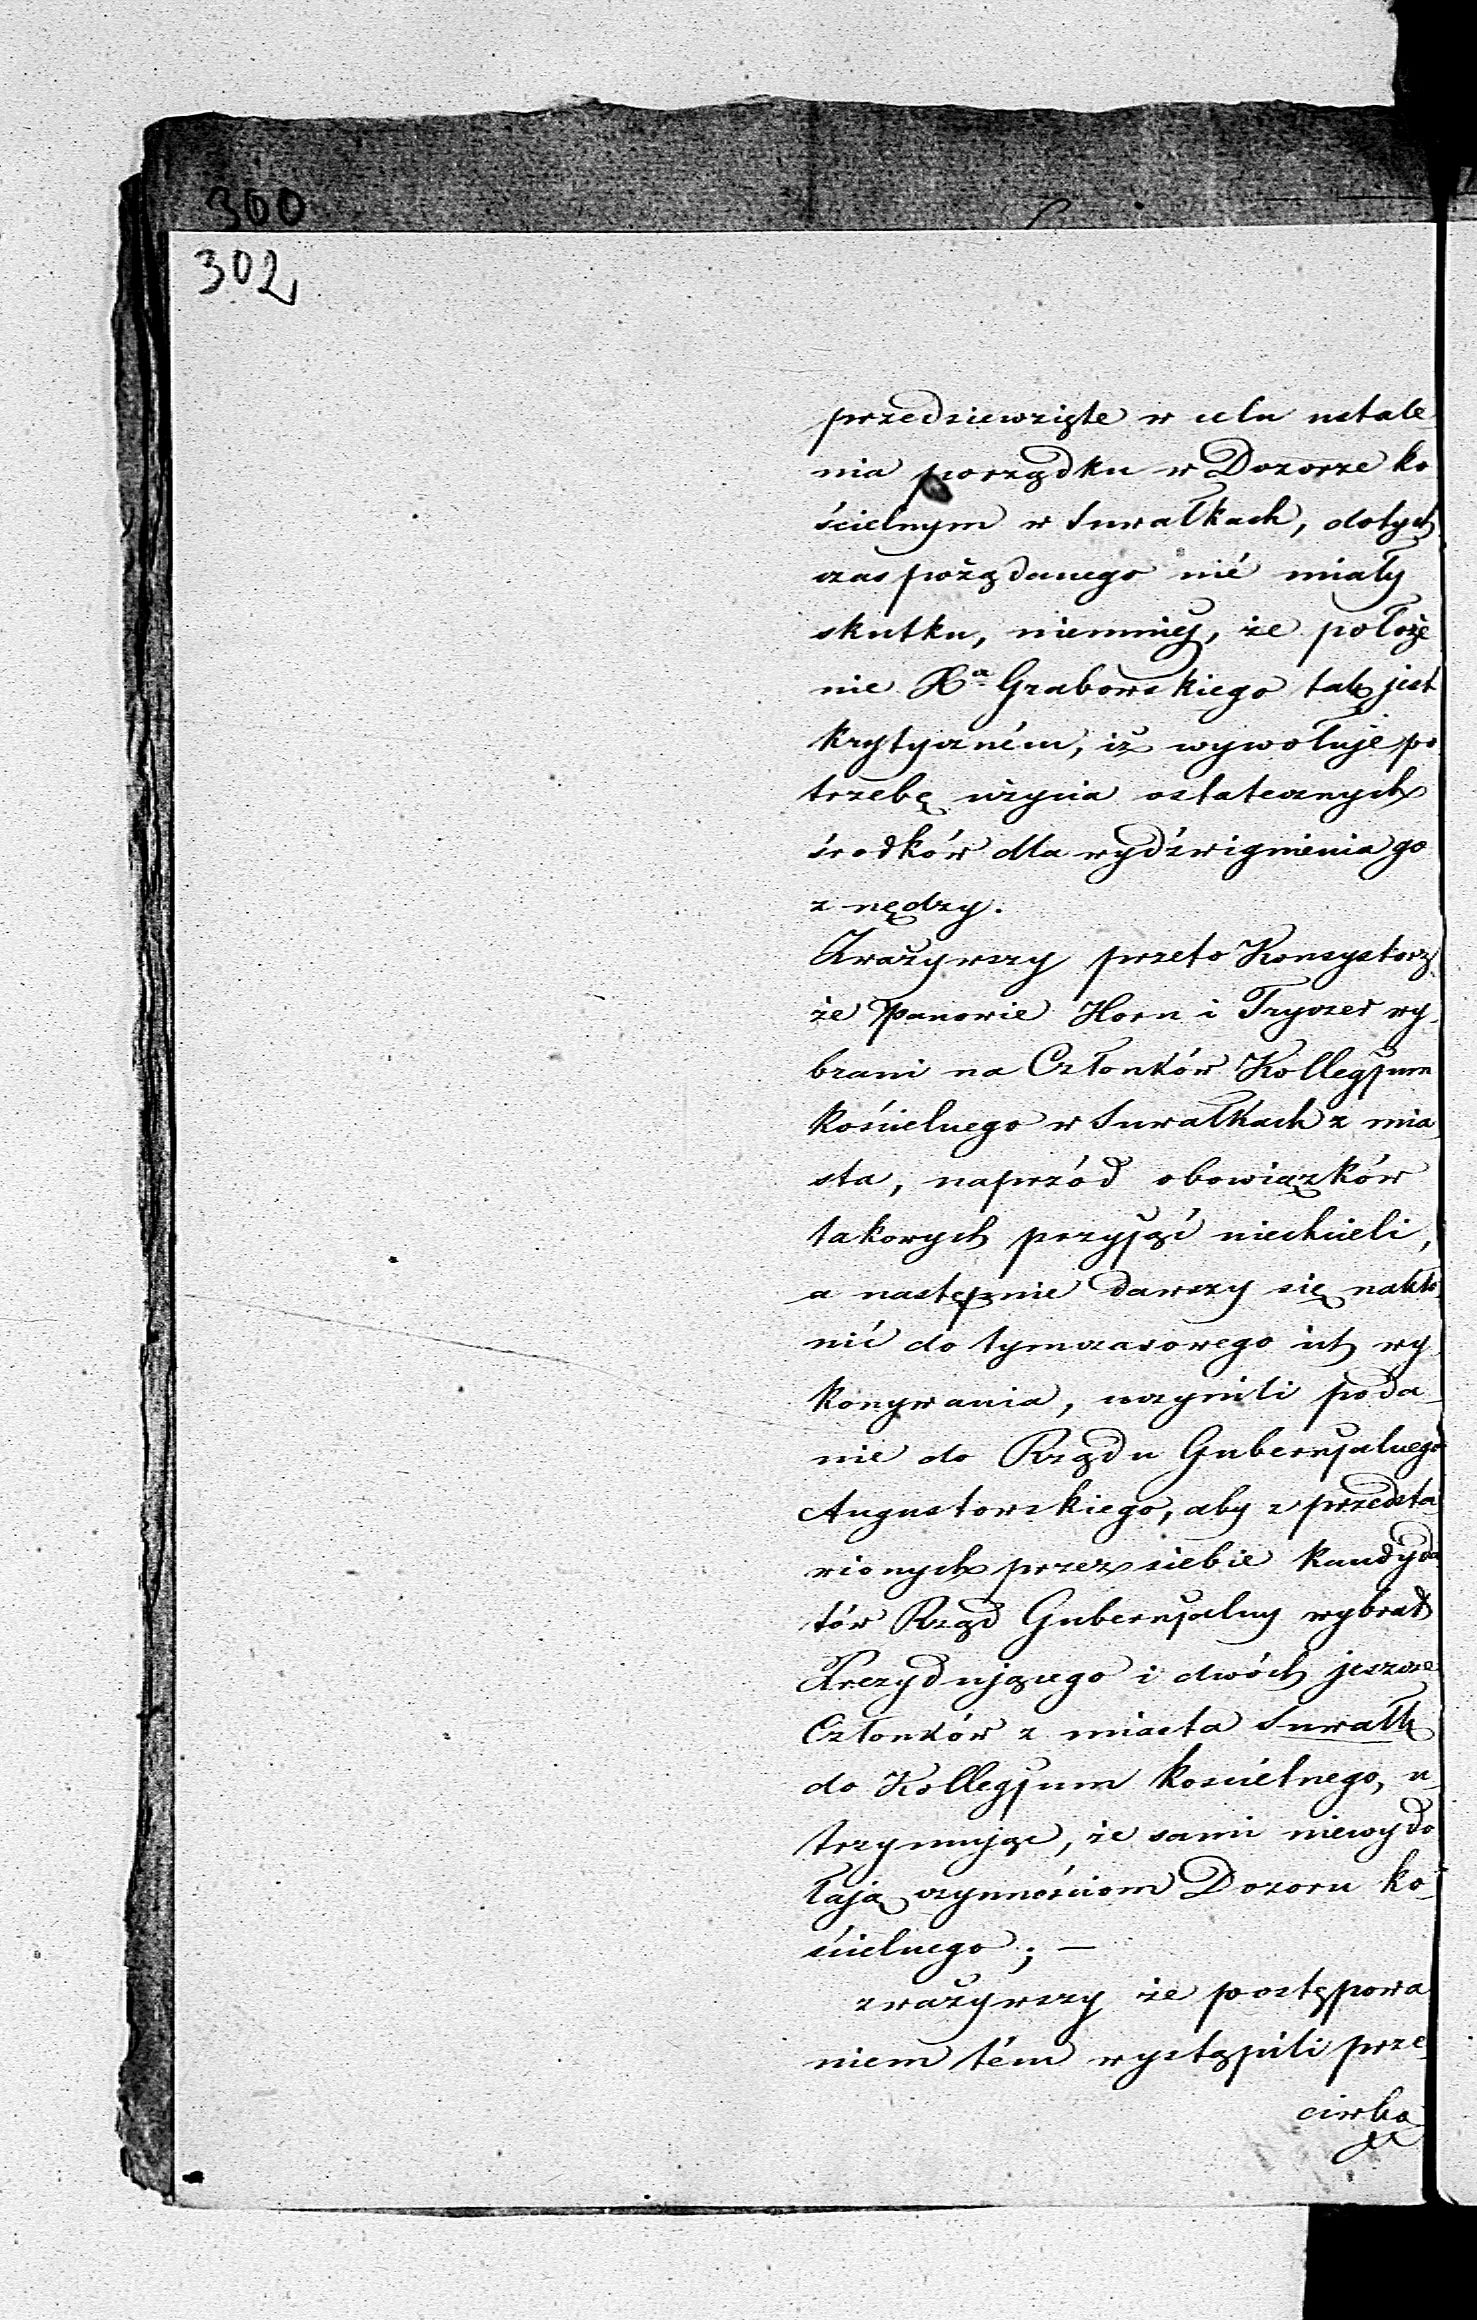 300
302
przedsiewzięte w celu ustale
nia porządku w Dozorze ko
ścielnym w Suwałkach, dotych
czas pożądanego nié miały
skutku, niemniej, że położe
nie Xa Grabowskiego tak jest
krytyczném, iż wywołuje po
trzebę użycia ostatecznych
środków dla wydźwignienia go
z nędzy.
Zważywszy przeto Konsystorz
że Panowie Horn i Tryszer wy
brani na Członków Kollegjum
kościelnego w Suwałkach z mia
sta, naprzód obowiązków
takowych przyjąć niechcieli,
a następnie dawszy się nakło
nić do tymczasowego ich wy
konywania, uczynili poda-
nie do Rządu Gubernjalnego
Augustowskiego, aby z przedsta
wionych przez siebie kandyda
tów Rząd Gubernjalny wybrał
Prezydującego i dwóch jeszcze
Członków z miasta Suwałk
do Kollegjum kościelnego, u-
trzymując, że sami niewydo
łają czynnościom Dozoru ko-
ścielnego; —
zważywszy że postępowa
niem tém wystąpili prze
ciwko